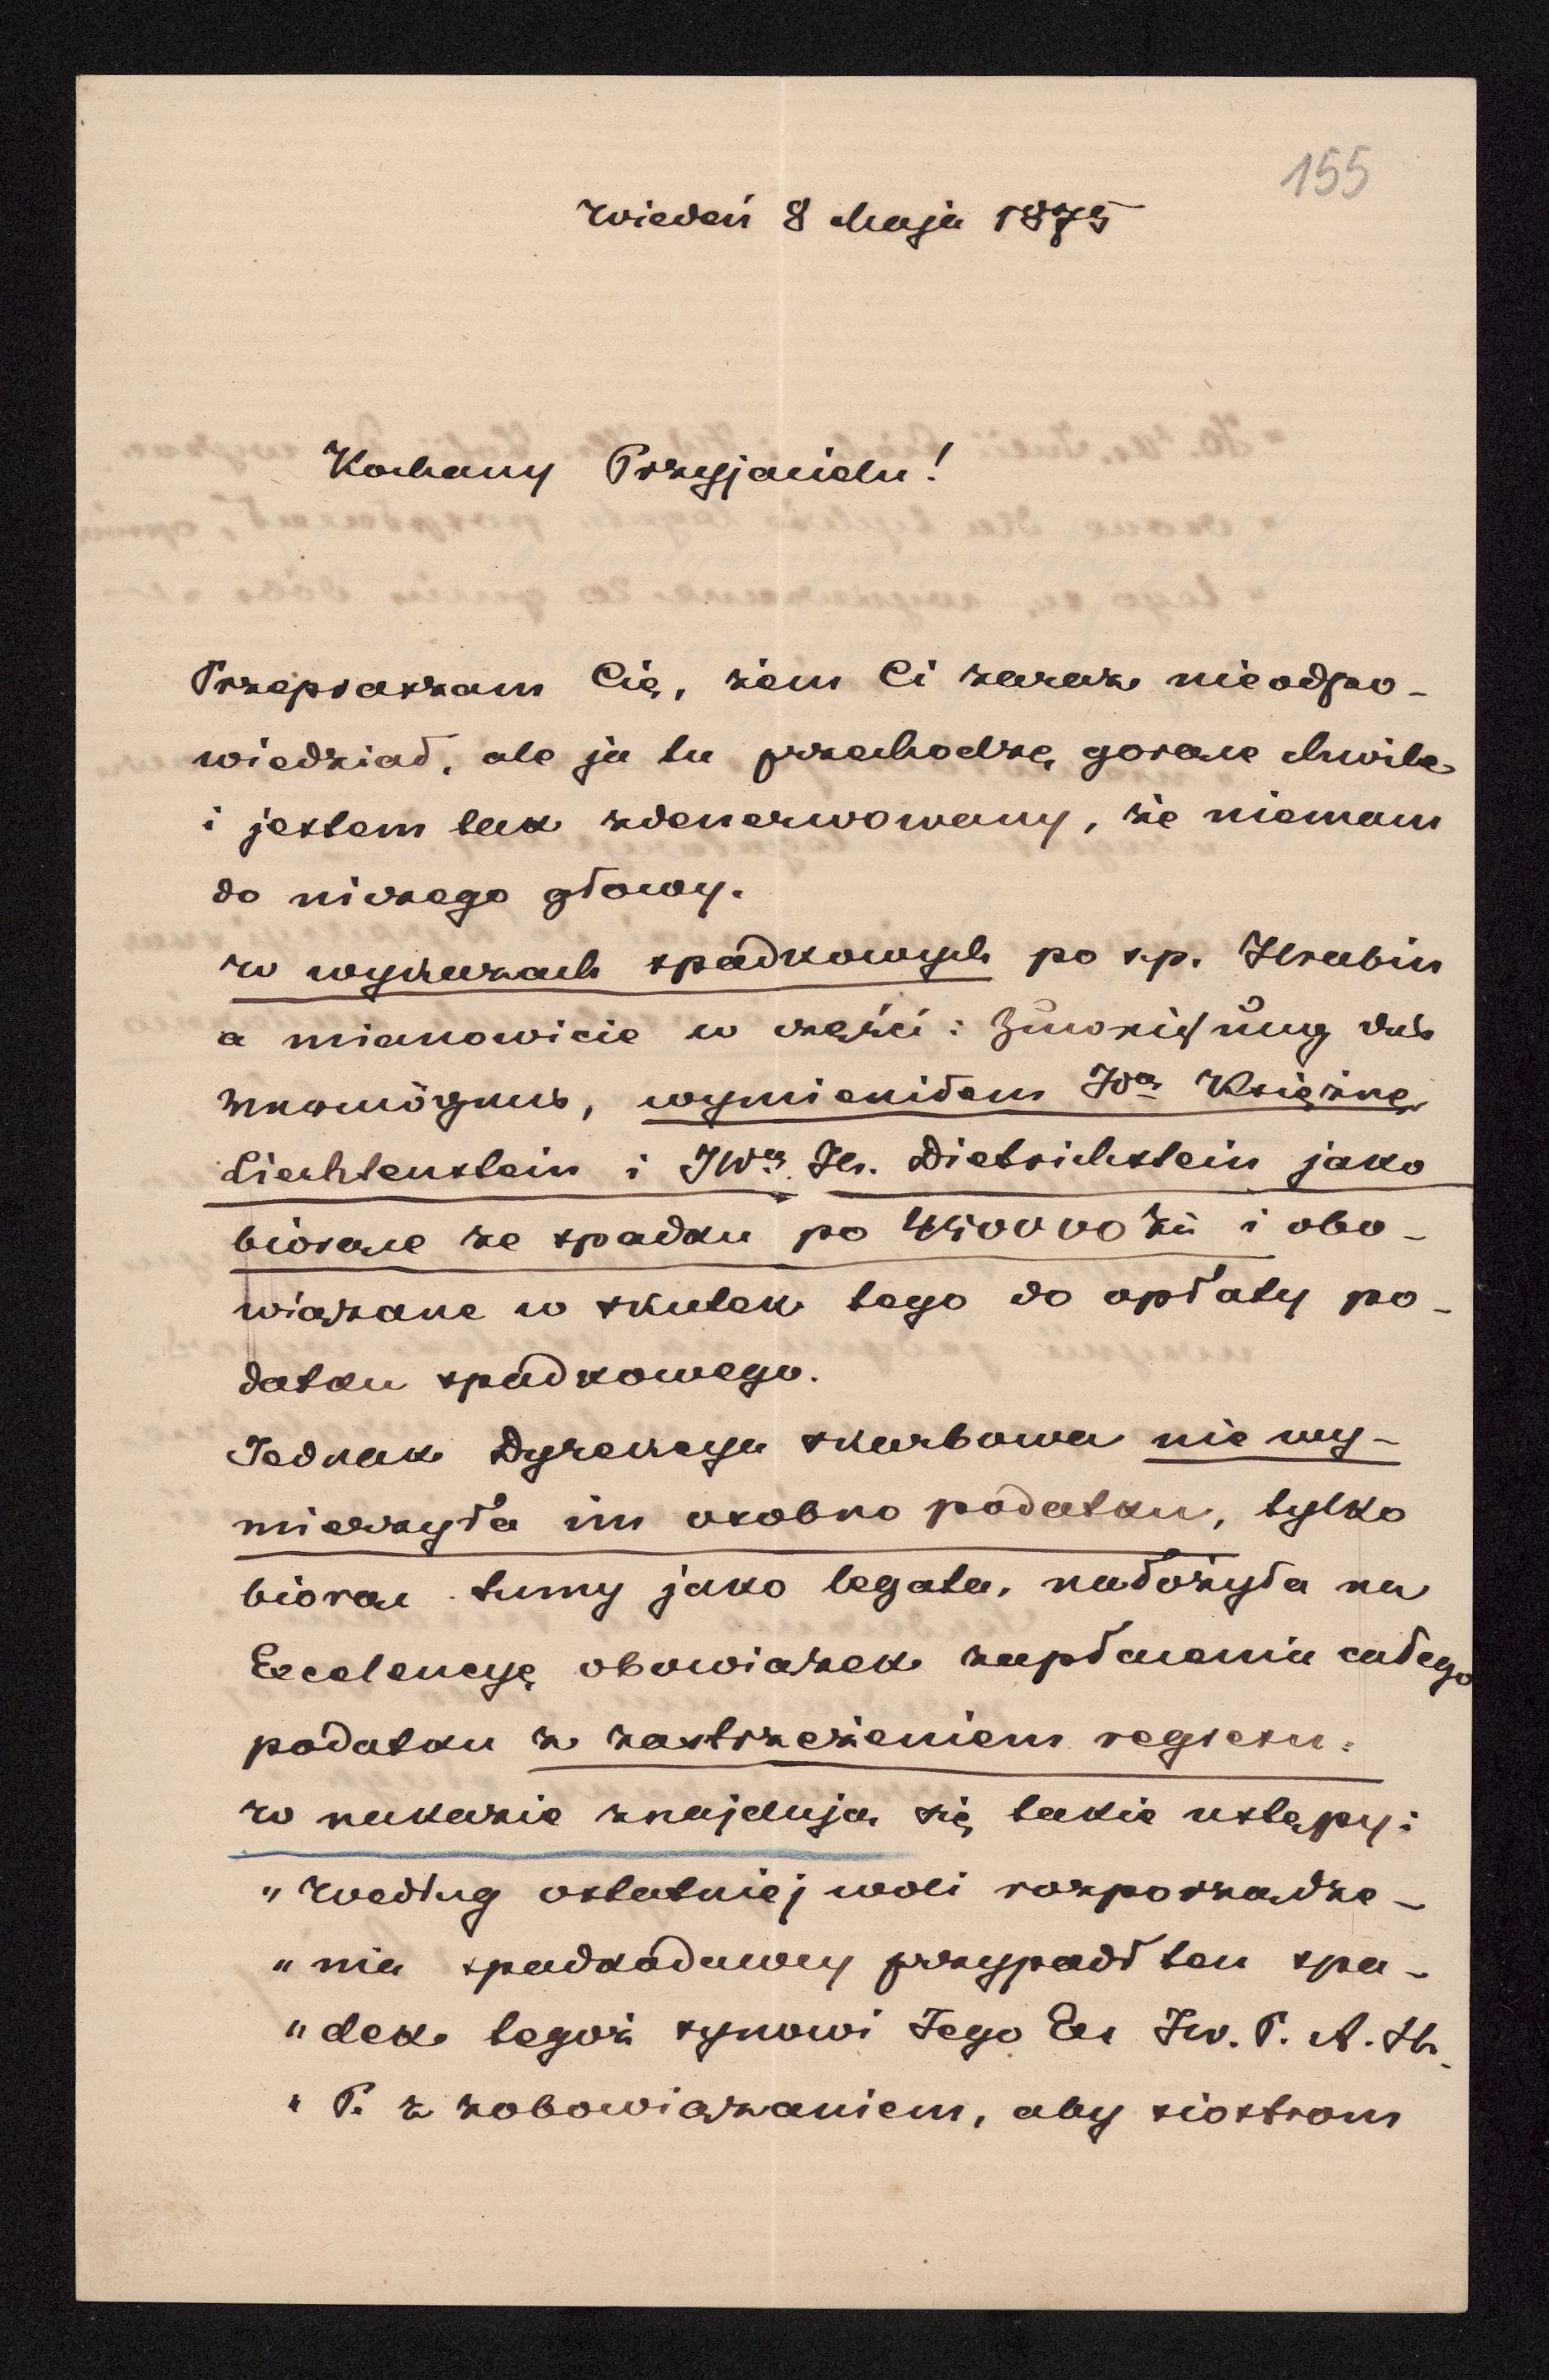 155
Wiedeń 8 Maja 1875
Kochany Przyjacielu!
Przepraszam Cię, żem Ci zaraz nieodpo-
wiedział, ale ja tu przechodzę gorące chwile
i jestem tak zdenerwowany, że niemam
do niczego głowy.
W wykazach spadkowych po s.p. Hrabin
a mianowicie w części: das
wymieniłem JOę Księżnę
Liechtenstein i JWą H. Dietrichstein jako
biorące ze spadku po i obo-
wiązane w skutek tego do opłaty po-
datku spadkowego.
Jednak Dyrekcya skarbowa nie wy-
mierzyła im osobno podatku, tylko
biorąc sumy jako legata, nałożyła na
Excelencyę obowiązek zapłacenia całego
podatku z zastrzeżeniem regresu.
W nakazie znajdują się takie ustępy:
"Według ostatniej woli rozporządze-
"nia spadkodawcy przypadł ten spa-
"dek tegoż synowi Jego Ex JW. P. A. H.
"P. z zobowiązaniem, aby siostrom